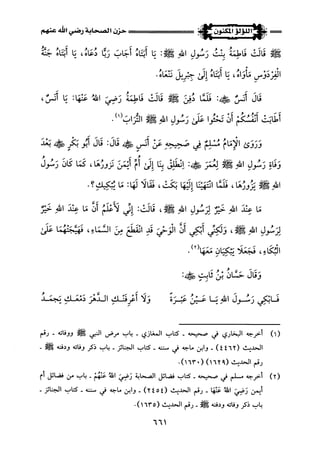 اللؤلؤ المكنون
حزن الصحابة رضي الله عنهم
ﷺ قَالَتْ فَاطِمَةُ بِنْتُ رَسُولِ اللهِ ﷺ: يَا أَبَتَاهُ أَجَابَ رَبًّا دَعَاهُ، يَا أَبَتَاهُ جَنَّةُ
الْفِرْدَوْسِ مَأْوَاهُ، يَا أَبَتَاهُ إِلَى جِبْرِيلَ نَنْعَاهُ.
قَالَ أَنَسٌ ﷺ: فَلَمَّا دُفِنَ ﷺ قَالَتْ فَاطِمَةُ رَضِيَ اللهُ عَنْهَا: يَا أَنَسُ،
أَطَابَتْ أَنْفُسُكُمْ أَنْ تَحْثُوا عَلَى رَسُولِ اللهِ ﷺ التُّرَابَ(١).
وَرَوَى الإِمَامُ مُسْلِمٌ فِي صَحِيحِهِ عَنْ أَنَسٍ ﷺ قَالَ: قَالَ أَبُو بَكْرٍ بَعْدَ
وَفَاةِ رَسُولِ اللهِ ﷺ لِعُمَرَ ﷺ: اِنْطَلِقْ بِنَا إِلَى أُمِّ أَيْمَنَ نَزُورُهَا، كَمَا كَانَ رَسُولُ
اللهِ ﷺ يَزُورُهَا، فَلَمَّا انْتَهَيْنَا إِلَيْهَا بَكَتْ، فَقَالَا لَهَا: مَا يُبْكِيكِ؟
مَا عِنْدَ اللهِ خَيْرٌ لِرَسُولِ اللهِ ﷺ، قَالَتْ: إِنِّي لَأَعْلَمُ أَنَّ مَا عِنْدَ اللهِ خَيْرٌ
لِرَسُولِ اللهِ ﷺ، وَلَكِنِّي أَبْكِي أَنَّ الْوَحْيَ قَدِ انْقَطَعَ مِنَ السَّمَاءِ، فَهَيَّجَتْهُمَا عَلَى
الْبُكَاءِ، فَجَعَلَا يَبْكِيَانِ مَعَهَا(٢).
وَقَالَ حَسَّانُ بْنُ ثَابِتٍ ﷺ:
فَابْكِي رَسُولَ اللهِ يَا عَيْنُ عَبْرَةً وَلَا أَعْرِفَنْكِ الدَّهْرَ دَمْعُكِ يَجْمُدُ
(١) أخرجه البخاري في صحيحه - كتاب المغازي - باب مرض النبي ﷺ ووفاته - رقم
الحديث (٤٤٦٢) - وابن ماجه في سننه - كتاب الجنائز - باب ذكر وفاته ودفنه ﷺ -
رقم الحديث (١٦٢٩) (١٦٣٠).
(٢) أخرجه مسلم في صحيحه - كتاب فضائل الصحابة رَضِيَ اللهُ عَنْهُمْ - باب من فضائل أم
أيمن رَضِيَ اللهُ عَنْهَا - رقم الحديث (٢٤٥٤) - وابن ماجه في سننه - كتاب الجنائز -
باب ذكر وفاته ودفنه ﷺ - رقم الحديث (١٦٣٥).
٦٦١